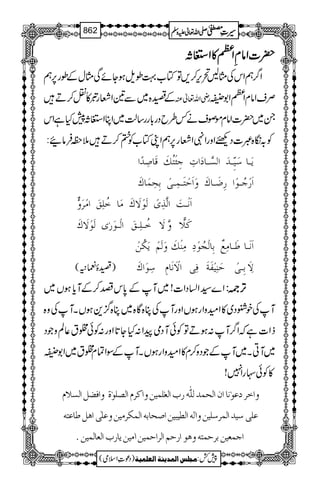 862 سیرتِ مصطفیٰ صلی اللہ تعالیٰ علیہ وسلم
حضرت امام اعظم کا استغاثہ
اگر ہم اس کی مثالیں تحریر کریں تو کتاب بہت طویل ہو جائے گی مثال کے طور پر ہم
صرف امام اعظم ابوحنیفہ رضی اللہ تعالیٰ عنہ کے قصیدہ میں سے تین اشعار تبرکاً نقل کرتے ہیں
جن میں حضرت امام موصوف نے کس طرح دربار رسالت میں اپنا استغاثہ پیش کیا ہے اس
کو بہ نگاہ عبرت دیکھئے اور انہی اشعار پر ہم اپنی کتاب کو ختم کرتے ہیں ملاحظہ فرمائیے:
یَا سَیِّدَ السَّادَاتِ جِئْتُکَ قَاصِدًا
اَرْجُوْا رِضَاکَ وَاَحْتَمِیْ بِحِمَاکَ
اَنْتَ الَّذِیْ لَوْلَاکَ مَا خُلِقَ امْرَؤٌ
کَلَّا وَّ لَا خُلِقَ الْوَرٰی لَوْلَاکَ
اَنَا طَامِعٌ بِالْجُوْدِ مِنْکَ وَلَمْ یَکُنْ
لِاَبِیْ حَنِیْفَةَ فِی الْاَنَامِ سِوَاکَ
(قصیدۂ نعمانیہ)
ترجمہ: اے سید السادات! میں آپ کے پاس قصد کر کے آیا ہوں میں
آپ کی خوشنودی کا امیدوار ہوں اور آپ کی پناہ گاہ میں پناہ گزین ہوں۔ آپ کی وہ
ذات ہے کہ اگر آپ نہ ہوتے تو کوئی آدمی پیدا نہ کیا جاتا اور نہ کوئی مخلوق عالم وجود
میں آتی۔ میں آپ کے جود و کرم کا امیدوار ہوں۔ آپ کے سوا تمام مخلوق میں ابوحنیفہ
کا کوئی سہارا نہیں!
واٰخر دعوٰنا ان الحمد للّٰہ رب العٰلمین واکرم الصلوٰة وافضل السلام
علٰی سید المرسلین واٰلہ الطیبین اصحابہ المکرمین وعلٰی اھل طاعتہ
اجمعین برحمتہ وھو ارحم الراحمین اٰمین یارب العالمین .
پیش کش: مجلس المدینة العلمیة (دعوتِ اسلامی)